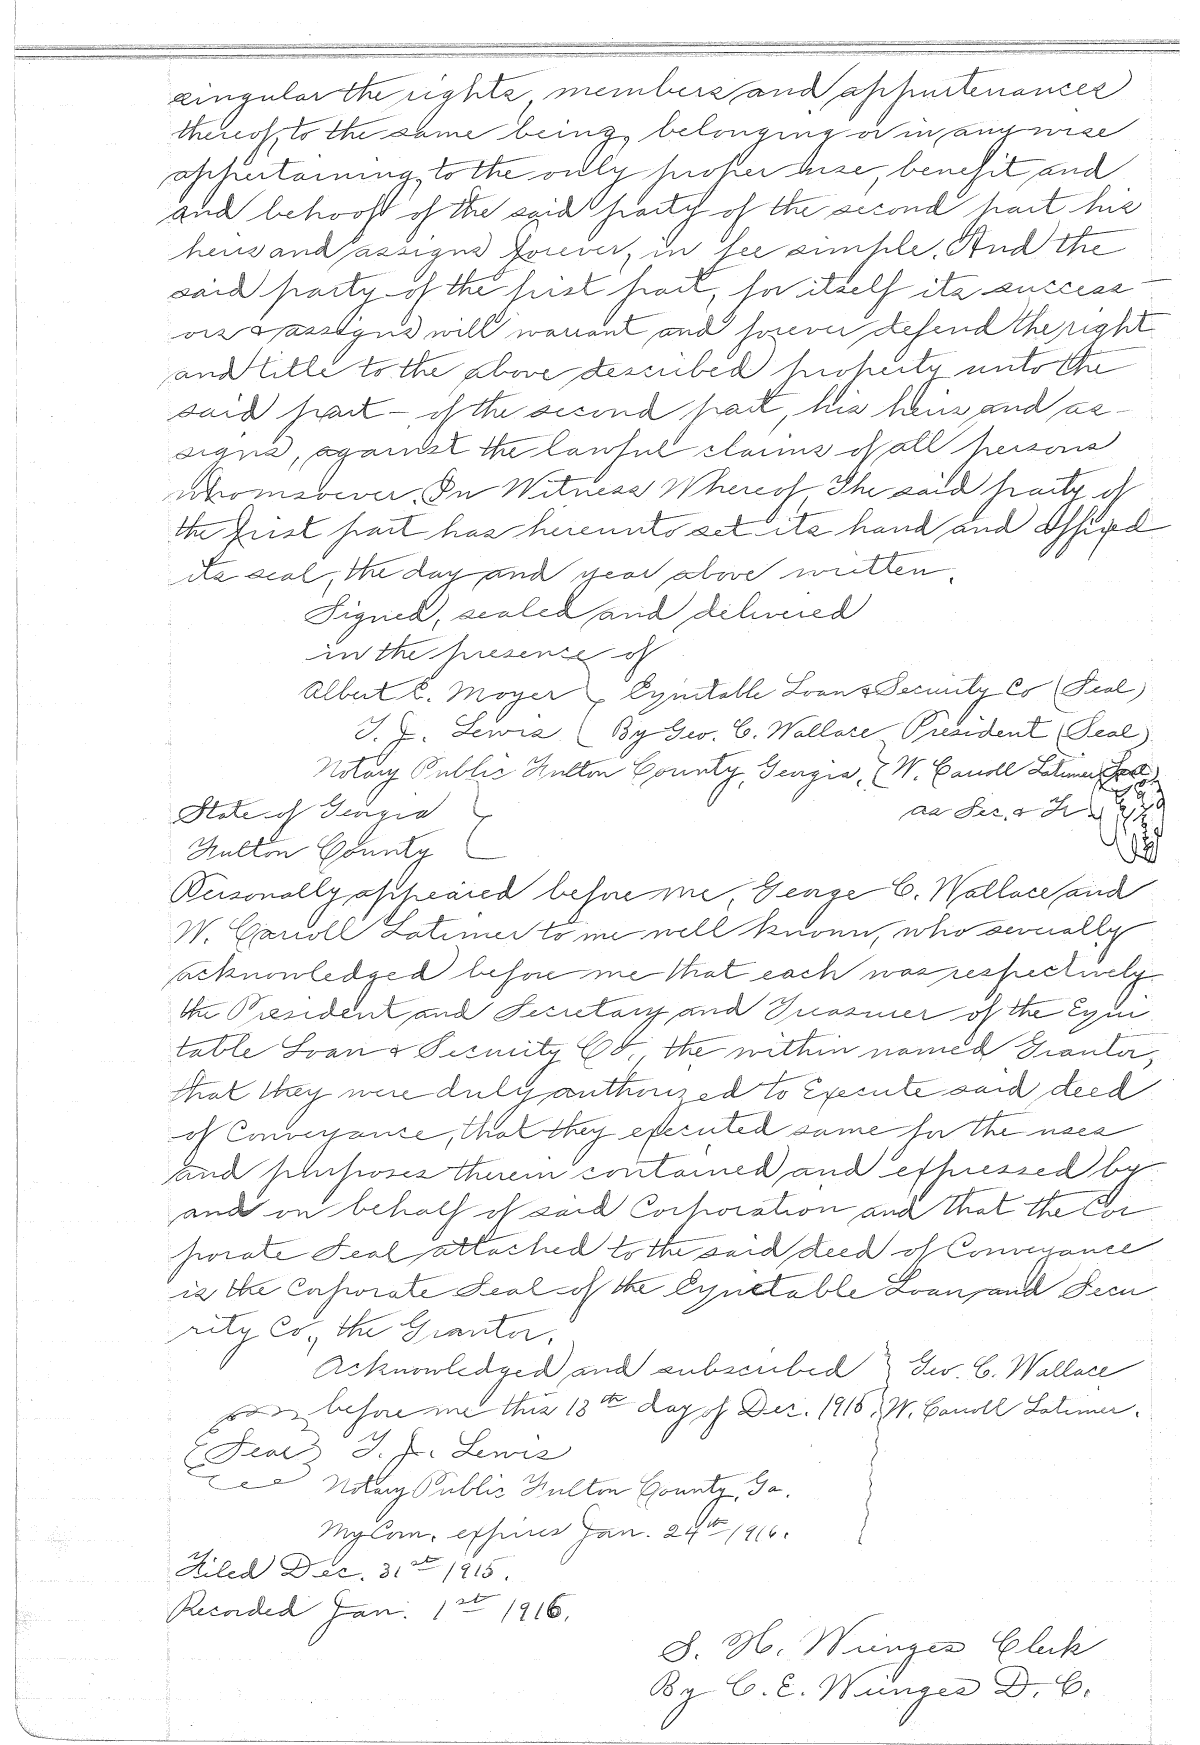 singular the rights, members and appurtenances
thereof, to the same being, belonging or in any wise
appertaining, to the only proper use, benefit and
and behoof of the said party of the second part his
heirs and assigns forever, in fee simple. And the
said party of the first part, for itself its success-
ors & assigns will warrant and forever defend the right
and title to the above described property unto the
said part - of the second part, his heirs and as-
signs, against the lawful claims of all persons
whomsoever. In Witness Whereof, The said party of
the first part has hereunto set its hand and affixed
its seal, the day and year above written.
Signed, sealed and delivered
in the presence of
Albert E. Moyer } Equitable Loan & Security Co (Seal)
T. J. Lewis ( By Geo. C. Wallace President (Seal)
Notary Public Fulton County, Georgia, { W. Carroll Latimer Seal
as Sec. & Tr
State of Georgia }
Fulton County
Personally appeared before me, George C. Wallace and
W. Carroll Latimer to me well known, who severally
acknowledged before me that each was respectively
the President and Secretary and Treasurer of the Equi
table Loan & Security Co., the within named Grantor,
that they were duly authorized to Execute said deed
of Conveyance, that they executed same for the uses
and purposes therein contained and expressed by
and on behalf of said Corporation and that the Cor
porate Seal attached to the said deed of Conveyance
is the Corporate Seal of the Equitable Loan and Secu
rity Co., the Grantor.
Acknowledged and subscribed } Geo. C. Wallace
before me this 18th day of Dec. 1915, W. Carroll Latimer.
(Seal) T. J. Lewis
Notary Public Fulton County, Ga.
My Com. expires Jan. 24th 1916.
Filed Dec. 31st 1915.
Recorded Jan. 1st 1916.
S. H. Wienges Clerk
By C. E. Wienges D. C.